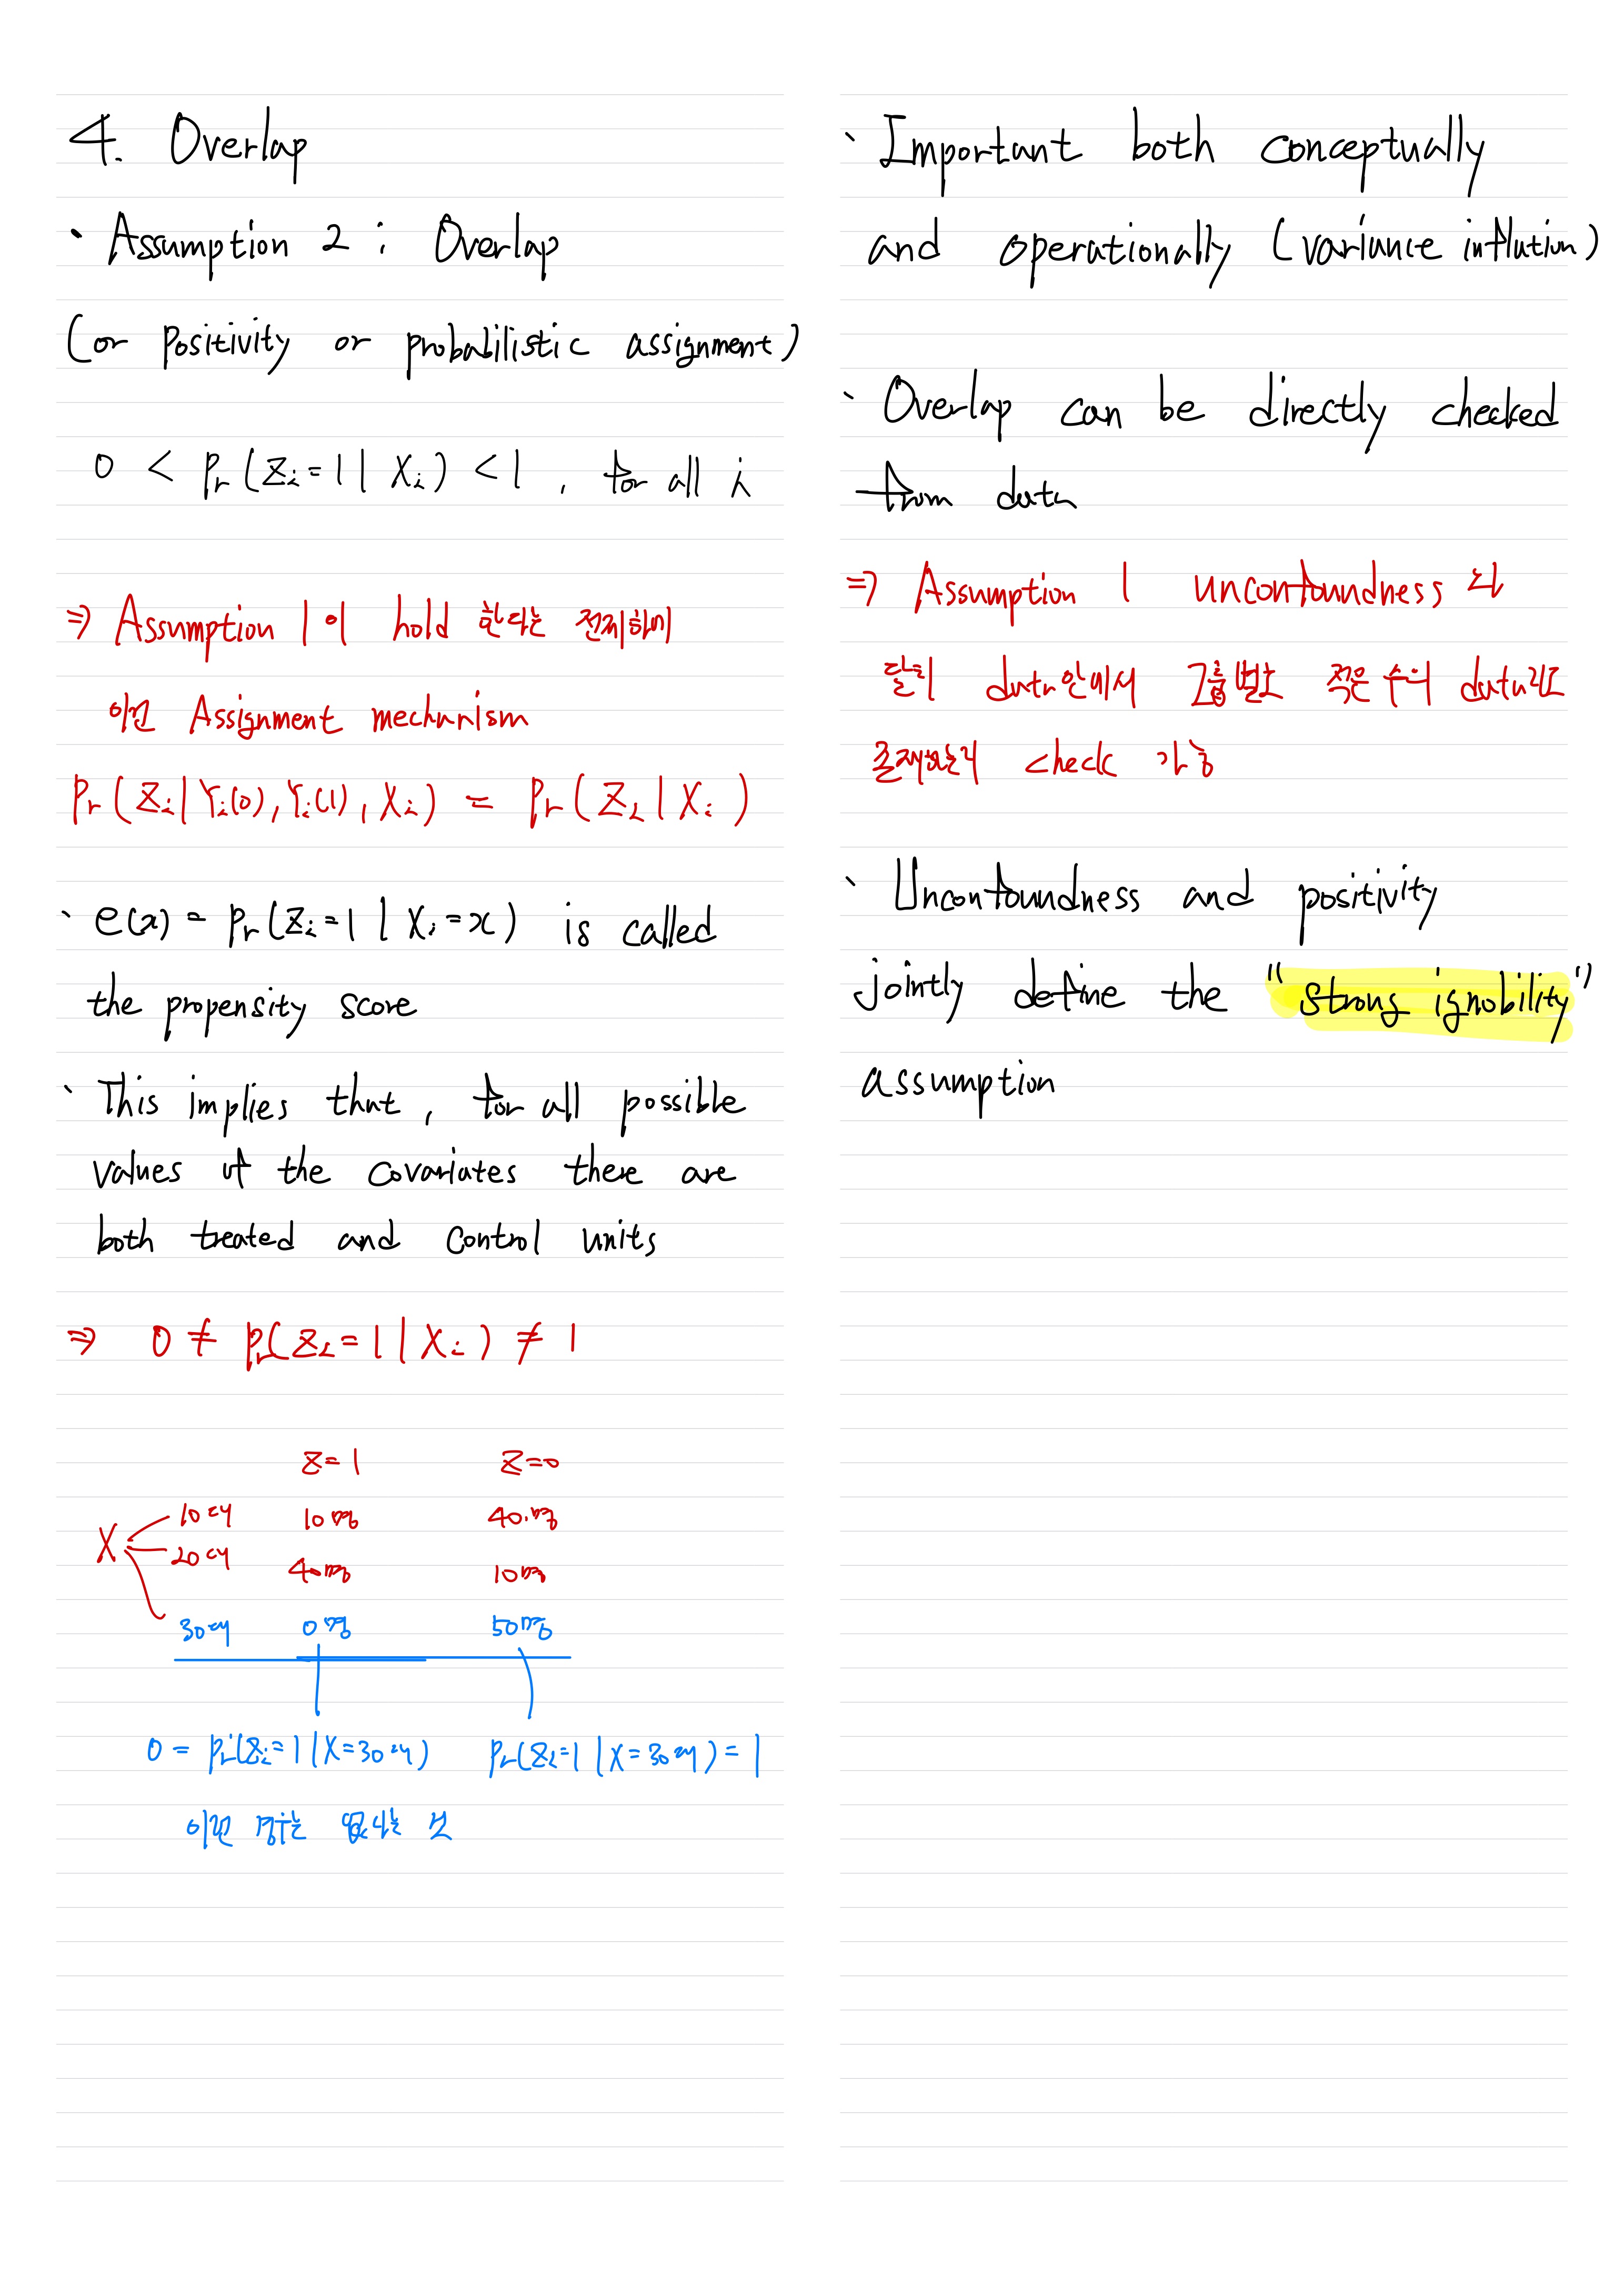 4. Overlap
· Assumption 2 : Overlap
(or Positivity or probabilistic assignment)
0 < Pr(Zi=1 | Xi) < 1 , for all i
⇒ Assumption 1 이 hold 한다는 전제하에
이건 Assignment mechanism
Pr(Zi | Yi(0), Yi(1), Xi) = Pr(Zi | Xi)
· e(x) = Pr(Zi=1 | Xi=x) is called
the propensity score
· This implies that, for all possible
values of the covariates there are
both treated and control units
⇒ 0 ≠ Pr(Zi=1 | Xi) ≠ 1
Z=1 Z=0
X 10대 10명 40명
20대 40명 10명
30대 0명 50명
0 = Pr(Zi=1 | X=30대) Pr(Zi=1 | X=30대) = 1
이런 경우는 없다는 것
· Important both conceptually
and operationally (variance inflation)
· Overlap can be directly checked
from data
⇒ Assumption 1 unconfoundness 와
달리 data안에서 그룹별로 적은 수의 data라도
존재하는지 check 가능
· Unconfoundness and positivity
jointly define the "strong ignobility"
assumption